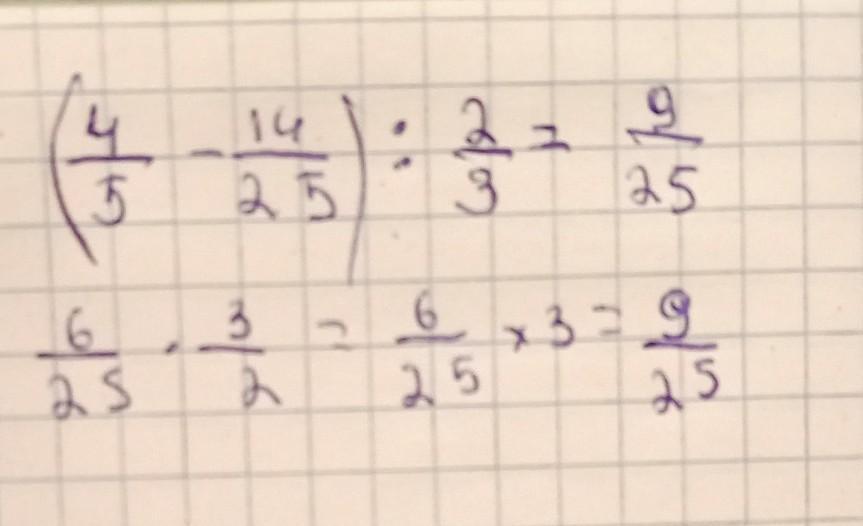 (4/5 - 14/25) : 2/3 = 9/25
6/25 · 3/2 = 6/25 × 3 = 9/25